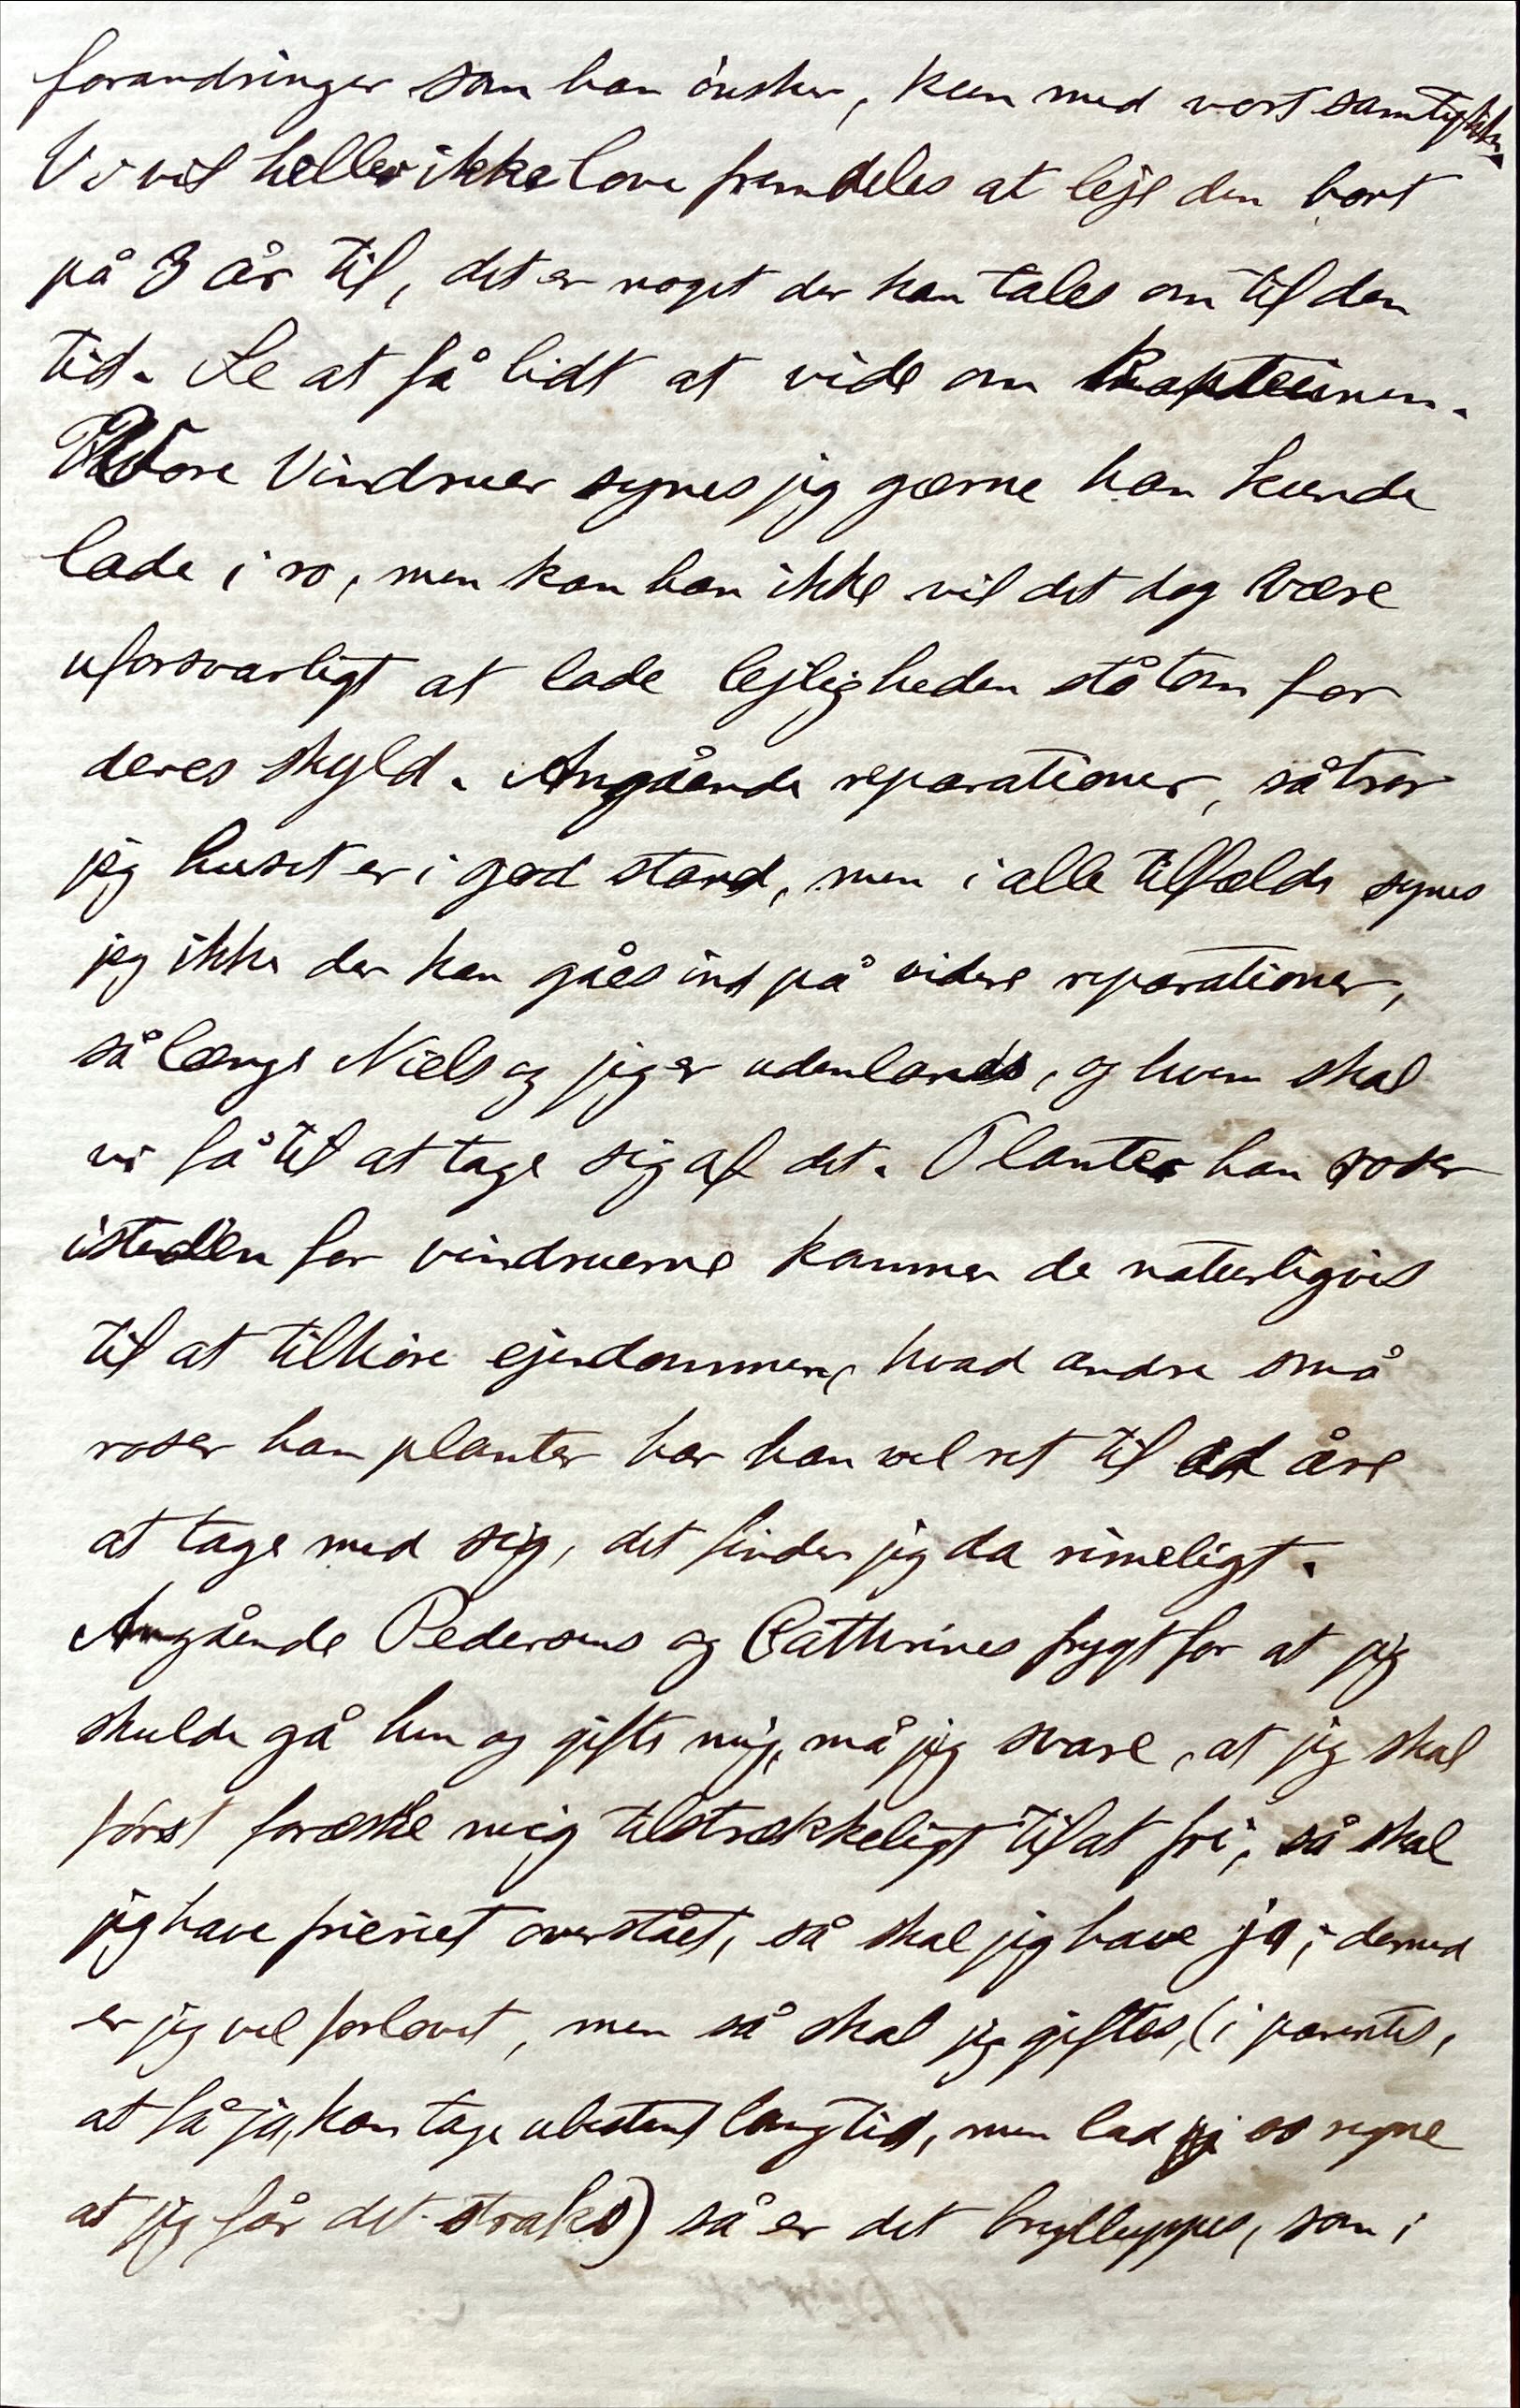 forandringer som han ønsker, kun med vort samtykke.
Vi vil heller ikke love fremdeles at leje den bort
på 3 år til, det er noget der kan tales om til den
tid. Se at få lidt at vide om kapteinen.
Vore Vindruer synes jeg gærne han kunde
lade i ro, men kan han ikke vil det dog være
uforsvarligt at lade lejligheden stå tom for
deres skyld. Angående reparationer, så tror
jeg huset er i god stand, men i alle tilfælde synes
jeg ikke der kan gåes ind på videre reparationer,
så længe Niels og jeg er udenlands, og hvem skal
vi få til at tage sig af det. Planter han roser
isteden for vindruerne kommer de naturligvis
til at tilhøre ejendommen, hvad andre små
roser han planter har han vel ret til ad åre
at tage med sig, det finder jeg da rimeligt.
Angående Pedersens og Cathrines frygt for at jeg
skulde gå hen og gifte mig, må jeg svare, at jeg skal
først forælske mig tilstrækkeligt til at fri, så skal
jeg have frieriet overstået, så skal jeg have ja, dermed
er jeg vel forlovet, men så skal jeg giftes, (i parentes,
at få ja, kan tage ubestemt lang tid, men lad os regne
at jeg får det straks) så er det brylluppes, som i